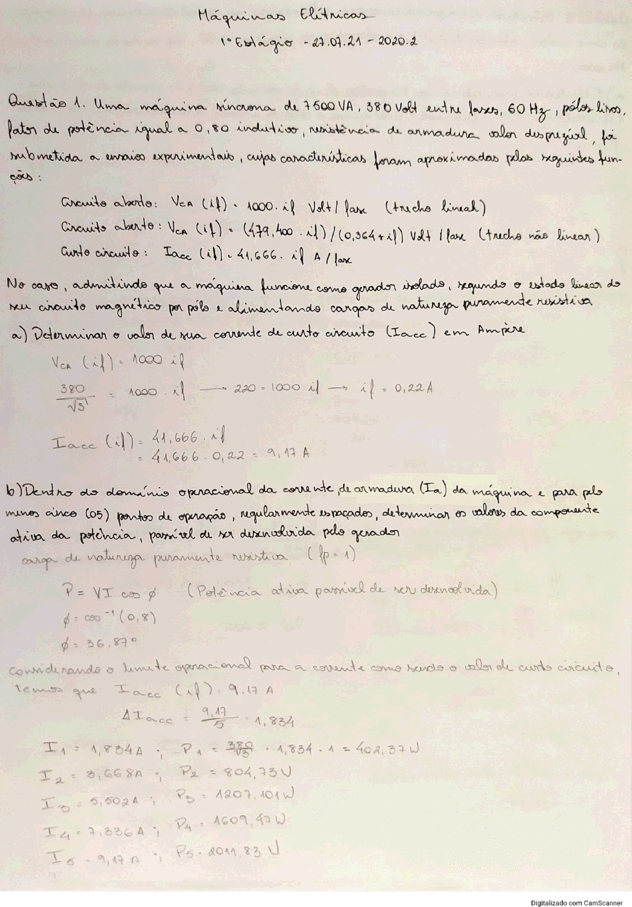 Máquinas Elétricas
1º Estágio - 27.07.21 - 2020.2
Questão 1. Uma máquina síncrona de 7500VA, 380 Volt entre fases, 60 Hz, pólos lisos,
fator de potência igual a 0,80 indutivo, resistência de armadura valor desprezível, foi
submetida a ensaios experimentais, cujas características foram aproximadas pelas seguintes fun-
ções:
Circuito aberto: VCA (if) = 1000. if Volt/fase (trecho linear)
Circuito aberto: VCA (if) = (479,400 . if)/(0,364+if) Volt /fase (trecho não linear)
Curto circuito: Iacc (if) = 41,666. if A/fase
No caso, admitindo que a máquina funcione como gerador isolado, segundo o estado linear do
seu circuito magnético por pólo e alimentando cargas de natureza puramente resistiva
a) Determinar o valor de sua corrente de curto circuito (Iacc) em Ampère
VCA (if) = 1000 if
380/√3 = 1000 . if → 220 = 1000 if → if = 0,22A
Iacc (if) = 41,666 . if
= 41,666 . 0,22 = 9,17 A
b) Dentro do domínio operacional da corrente de armadura (Ia) da máquina e para pelo
menos cinco (05) pontos de operação, regularmente espaçados, determinar os valores da componente
ativa da potência, passível de ser desenvolvida pelo gerador
carga de natureza puramente resistiva (fp = 1)
P = VI cos ϕ (Potência ativa passível de ser desenvolvida)
ϕ = cos⁻¹ (0,8)
ϕ = 36,87°
considerando o limite operacional para a corrente como sendo o valor de curto circuito,
temos que Iacc (if) = 9,17 A
ΔIacc = 9,17/5 = 1,834
I1 = 1,834A ; P1 = 380/√3 . 1,834 . 1 = 402,37W
I2 = 3,668A ; P2 = 804,73W
I3 = 5,502A ; P3 = 1207,101W
I4 = 7,336A ; P4 = 1609,47W
I5 = 9,17A ; P5 = 2011,83W
Digitalizado com CamScanner